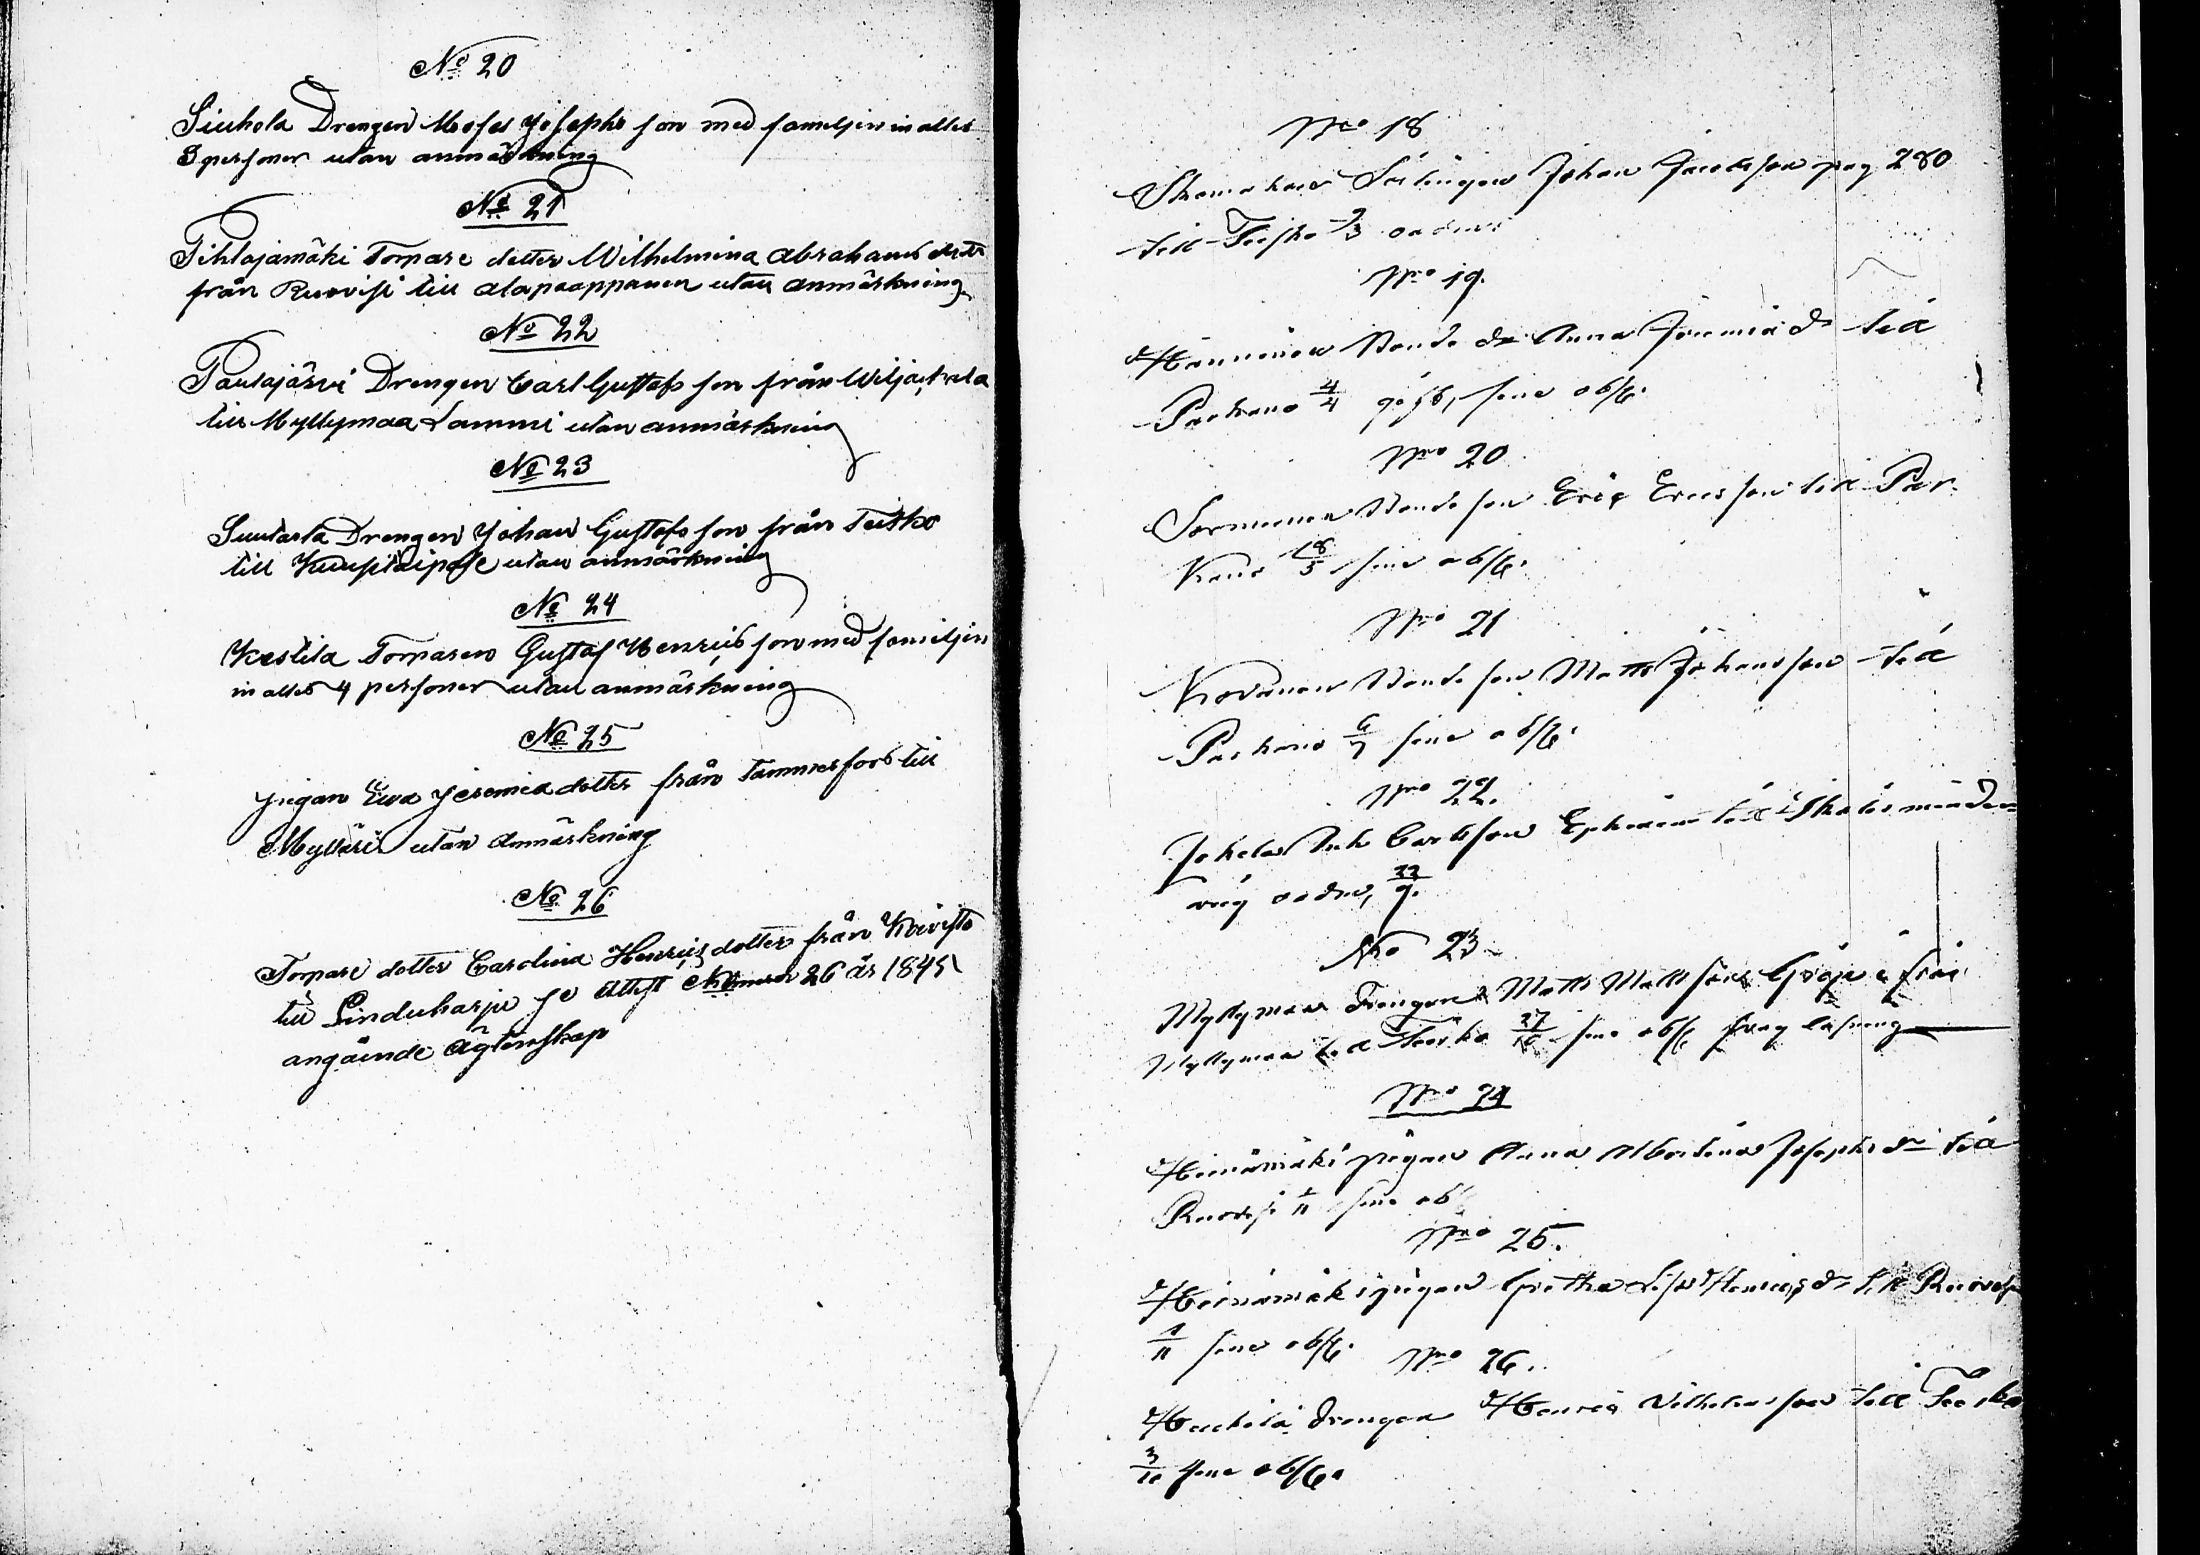 No 20
Siuhola Drengen Moses Josephs son med familjen in alles
3 personer utan anmärkning
No 21
Pihlajamäki Torpare dotter Wilhelmina Abrahams dotr
från Ruovesi till alapoappanen utan anmärkning
No 22
Paulajärvi Drengen Carl Gustafs son från Wiljackala
till Myllymaa Lammi utan anmärkning
No 23
Suutarla Drengen Johan Gustafs son från Teisko
till utan anmärkning
No 24
Kestila Torparen Gustaf Henrics son med familjen
in alles 4 personer utan anmärkning
No 25
Pigan Ewa Jeremia dotter från Tammerfors till
Mylläri utan anmärkning
No 26
Torpare dotter Carolina Henrics dotter från Koivisto
till Linduharju se attest Nummer 26 år 1845
angående ägtenskap
Nro 18
Johan Jacobsson pag 280
till Teisko 9/3
Nro 19.
Bonde dr Anna Jeremiä dr till
Parkano 4/4 sine obst.
Nro 20
Sormunen Bonde son Eric Ericsson till Par-
kano 18/5 sine obst.
Nro 21
Kovanen Bonde son Matts Johansson till
Parkano 6/7 sine obst.
Nro 22.
Jokela Carlsson Ephraim till
22/9.
Nro 23
Myllymaa Drengen Matts Mattsson från
Myllymaa till Teisko 27/10 sine obst.
Nro 24
Heinämäki pigan Anna Albertina Josephs dr till
Ruovesi 1/11 sine ob
Nro 25.
Heinämäki pigan Gretha Lisa Henrics dr till Ruovesi
1/11 sine obst.
Nro 26.
Drengen Henric Wilhelmsson till Teisko
3/10 sine obst.